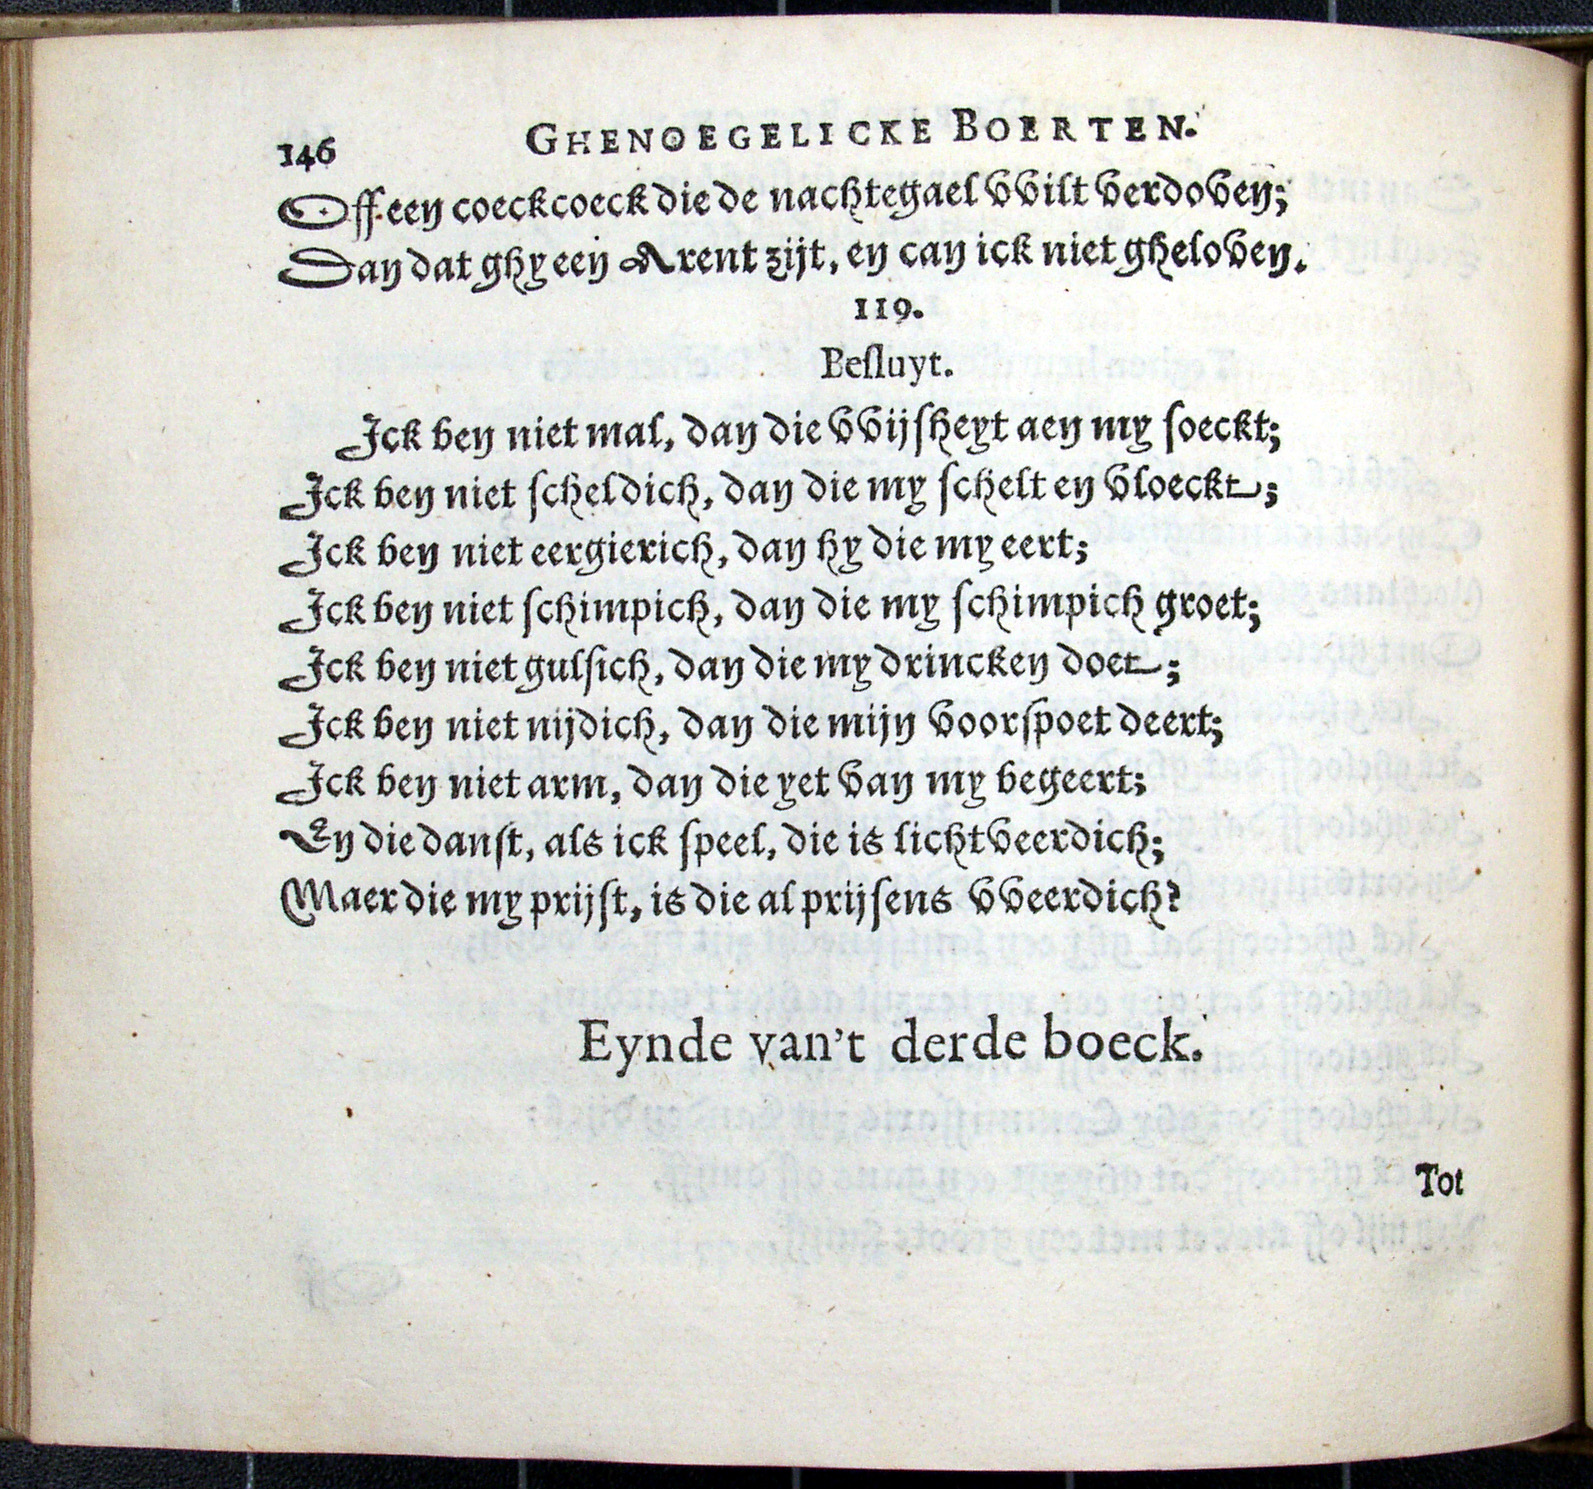 146 GHENOEGELICKE BOERTEN.
Off een coeckcoeck die de nachtegael vvilt verdoven;
Dan dat ghy een Arent zijt, en can ick niet gheloven.
119.
Besluyt.
Ick ben niet mal, dan die vvijsheyt aen my soeckt;
Ick ben niet scheldich, dan die my schelt en vloeckt;
Ick ben niet eergierich, dan hy die my eert;
Ick ben niet schimpich, dan die my schimpich groet;
Ick ben niet gulsich, dan die my drincken doet;
Ick ben niet nijdich, dan die mijn voorspoet deert;
Ick ben niet arm, dan die yet van my begeert;
En die danst, als ick speel, die is lichtveerdich;
Maer die my prijst, is die al prijsens vveerdich?
Eynde van't derde boeck.
Tot